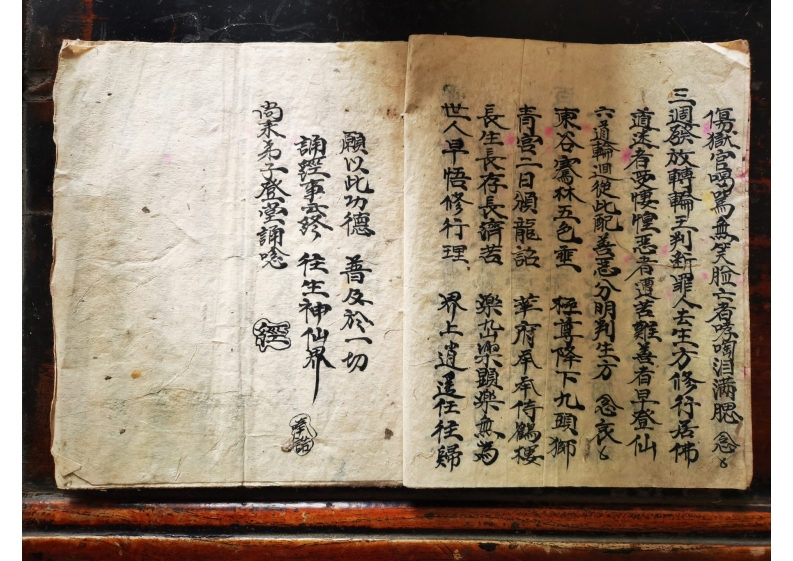 傷獄官呼罵無笑脸亡者啼啕泪满腮 念〻
三週殃放轉輪王判断罪人去生方修行居佛
道迷者受悽惶恶者遭苦難善者早登仙
六道輪迴從此配善恶分明判生方 念哀〻
東谷寒林五色垂 極尊降下九頭獅
青宫二日頒龍詔 華府承奉侍鶴樓
長生長存長濟苦 樂㘽樂顕樂無為
世人早悟修行理 界上逍遥任往歸
願以此功德 普及於一切
誦經事云終 往生神仙界
尚未弟子登堂誦唸 經
奉誥